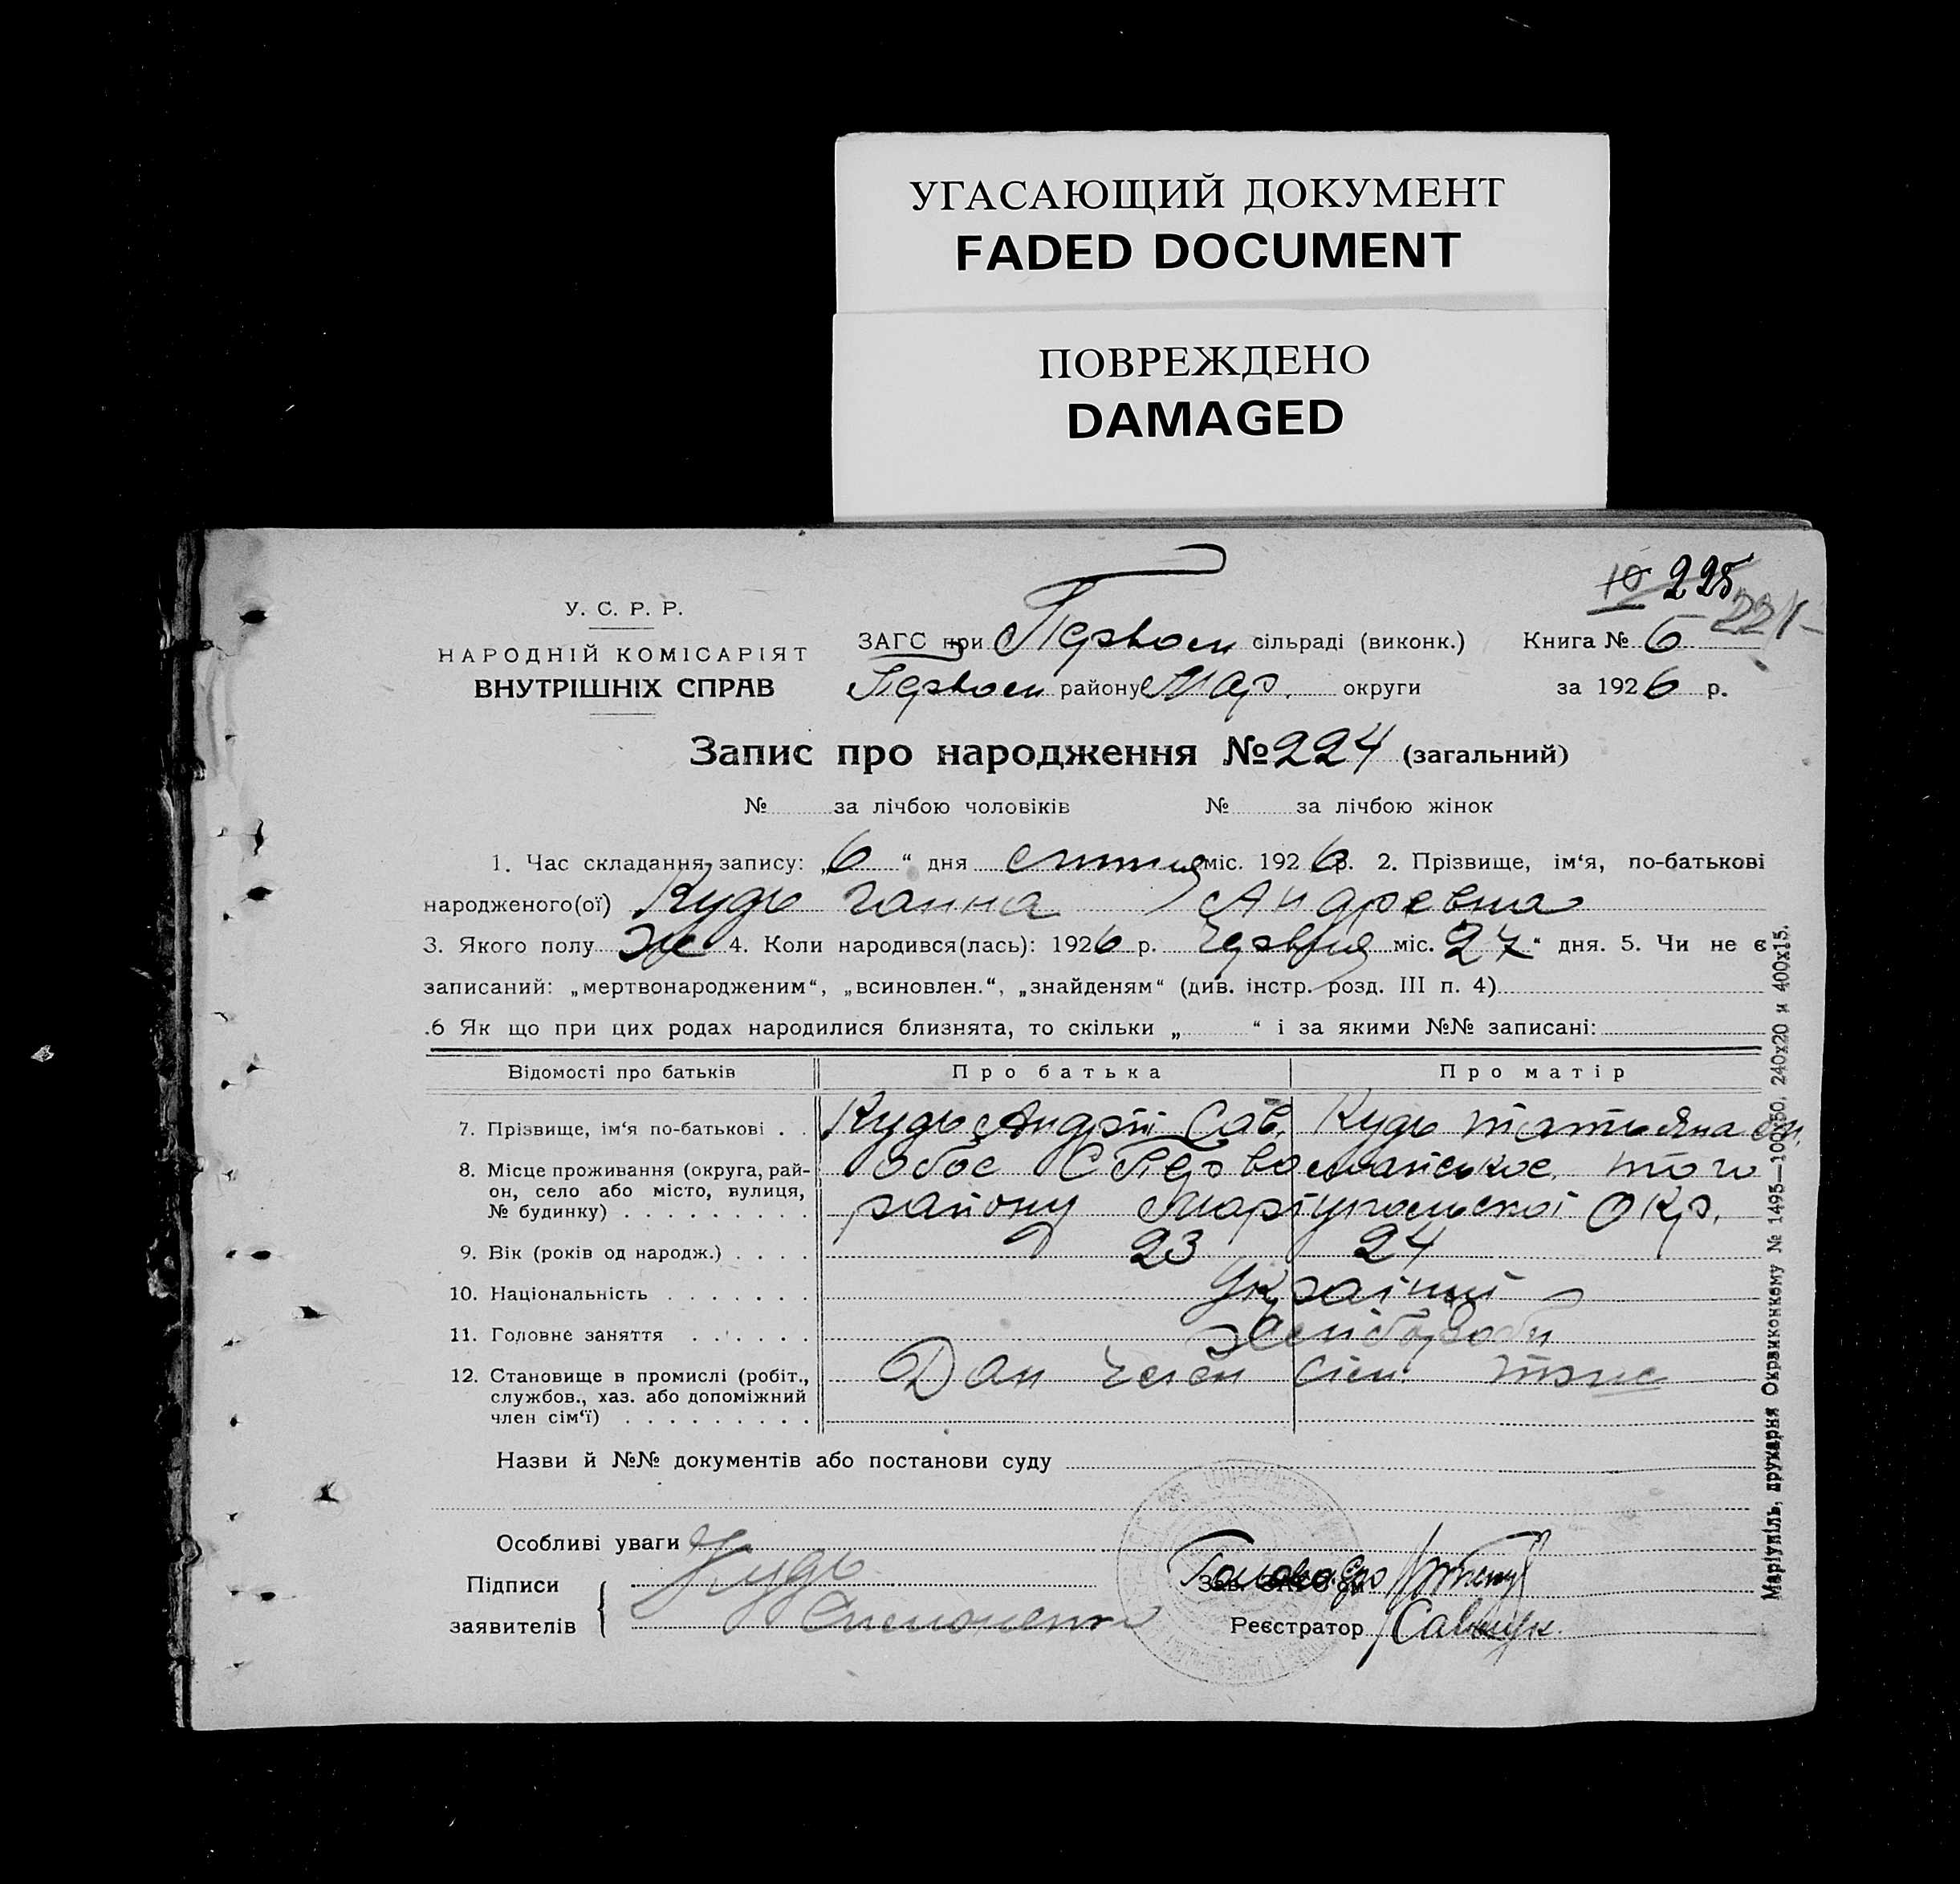 УГАСАЮЩИЙ ДОКУМЕНТ
FADED DOCUMENT
ПОВРЕЖДЕНО
DAMAGED
10 225
221
У. С. Р. Р.
НАРОДНІЙ КОМІСАРІЯТ
ВНУТРІШНІХ СПРАВ
ЗАГС при Первом сільраді (виконк.) Книга № 6
Первом району Мар. округи за 1926 р.
Запис про народження № 224 (загальний)
№ за лічбою чоловіків № за лічбою жінок
1. Час складання запису: „6“ дня липня міс. 1926 р. 2. Прізвище, ім‘я, по-батькові
народженого(ої) Кудь Ганна Андревна
3. Якого полу Же 4. Коли народився(лась): 1926 р. Червня міс. 27“ дня. 5. Чи не є
записаний: „мертвонародженим“, „всиновлен.“, „знайденям“ (див. інстр. розд. III п. 4)
.6 Як що при цих родах народилися близнята, то скільки „ “ і за якими №№ записані:
Відомості про батьків Про батька Про матір
7. Прізвище, ім‘я по-батькові . . Кудь Андрій Сав. Кудь Татьяна
8. Місце проживання (округа, рай- обоє С Первомайське того
он, село або місто, вулиця, району Маріупольскоі Окр.
№ будинку) . . . . . . . . .
9. Вік (років од народж.) . . . . 23 24
10. Національність . . . . . . . Украінці
11. Головне заняття . . . . . . Хлібороби
12. Становище в промислі (робіт., Доп член сім. теж
службов., хаз. або допоміжний
член сім‘ї) . . . . . . . . .
Назви й №№ документів або постанови суду
Особливі уваги
Підписи Кудь Голова
заявителів
Реєстратор
Маріупіль, друкарня Окрвиконкому № 1495—100х50, 240х20 и 400х15.